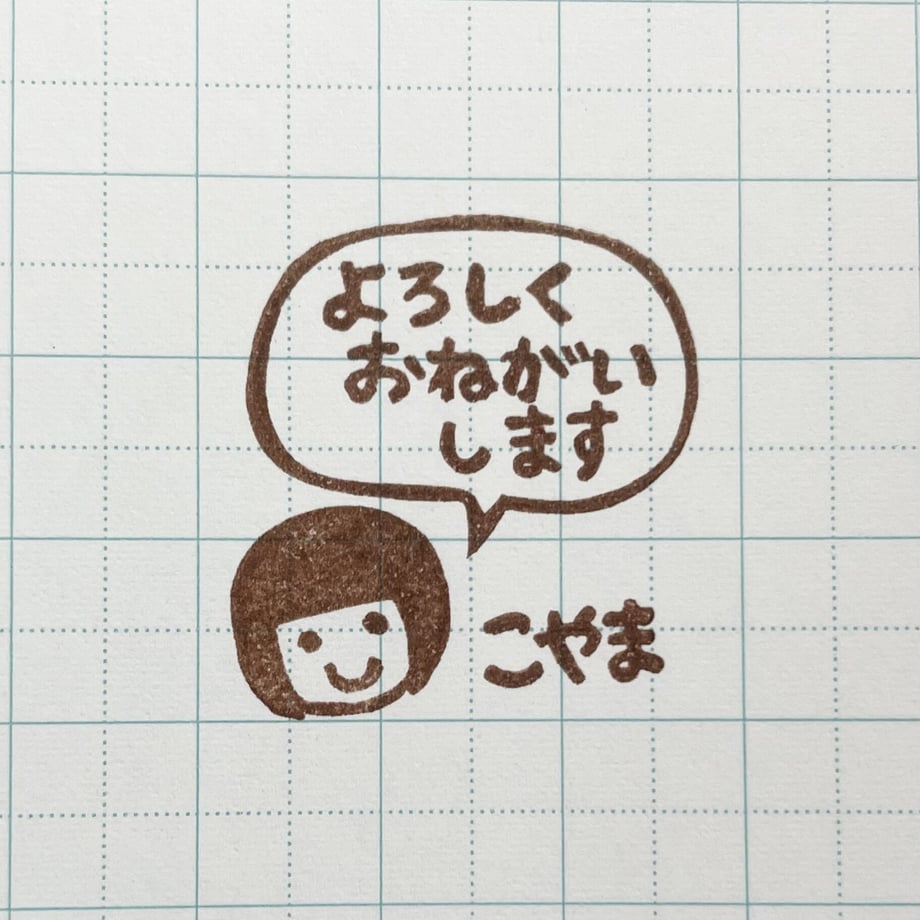 よろしく
おねがい
します
こやま